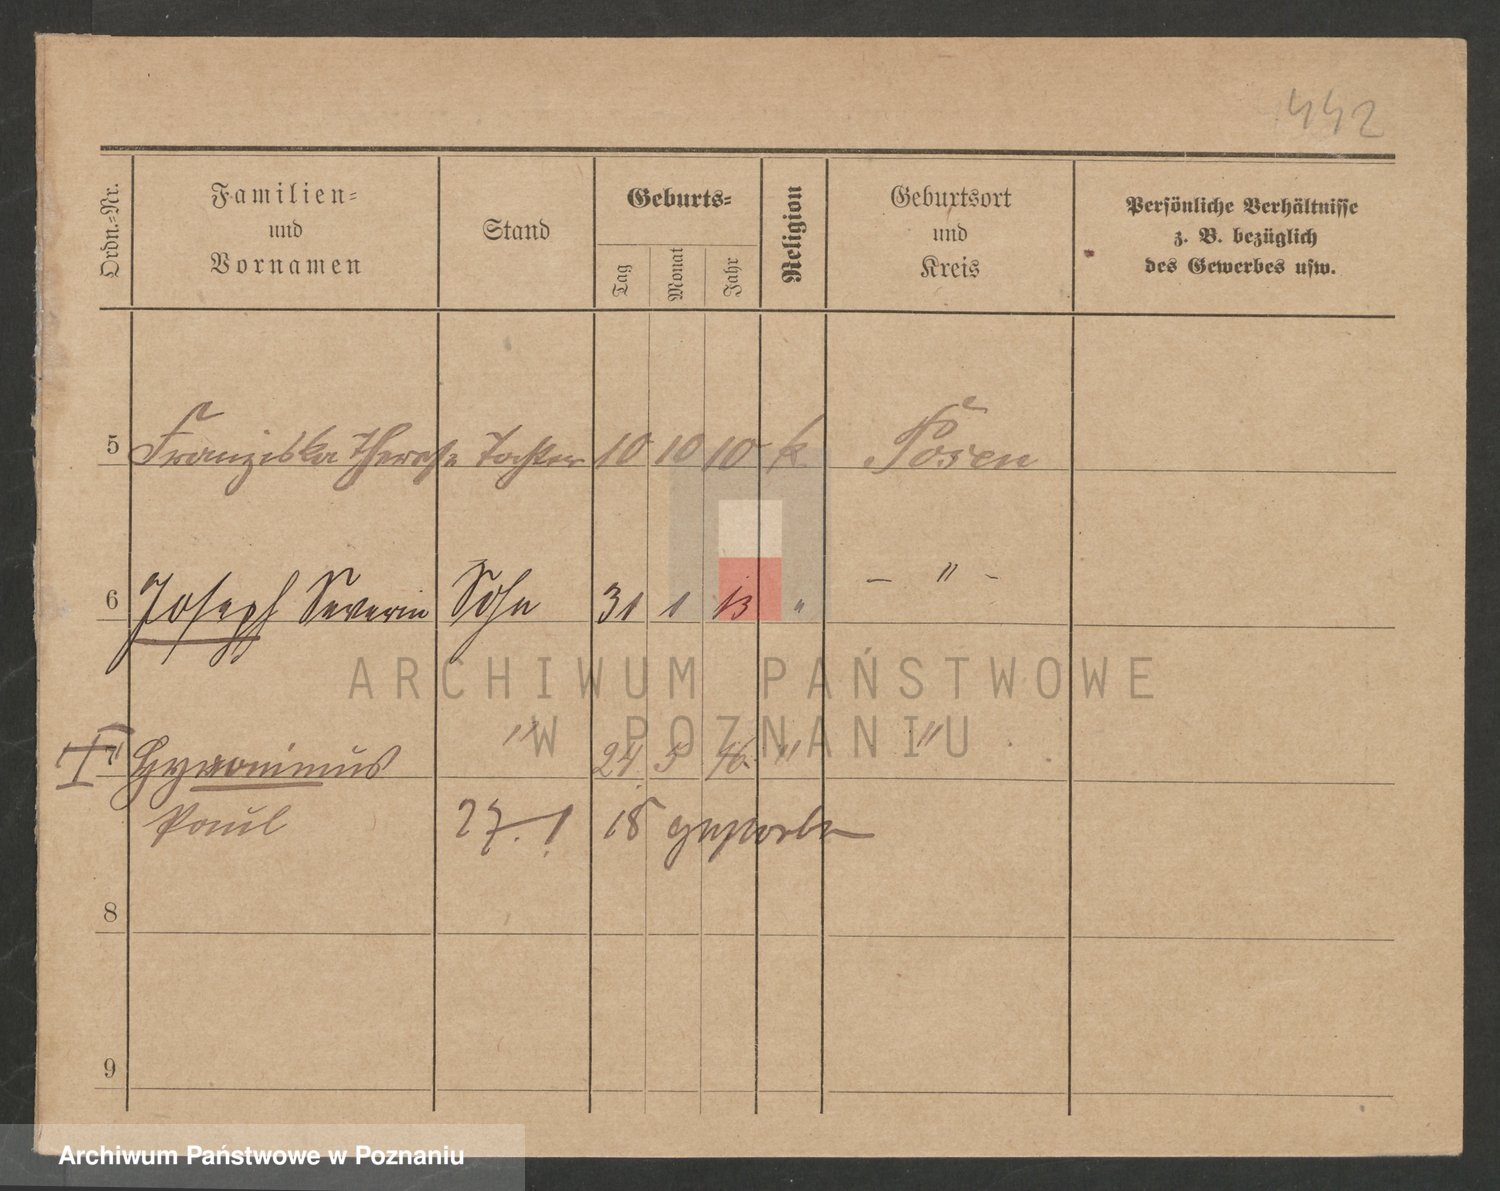 442
Ordn.-Nr.
Familien-
und
Vornamen
Stand
Geburts-
Tag
Monat
Jahr
Religion
Geburtsort
und
Kreis
Persönliche Verhältnisse
z. B. bezüglich
des Gewerbes usw.
5 Franziska Therese Tochter 10 10 10 k Posen
6 Joseph Severin Sohn 31 1 13 " - " -
ARCHIWUM PAŃSTWOWE
W POZNANIU
7 Hyronimus " 24 5 16 " "
Paul 27. 1 18 gestorben
8
9
Archiwum Państwowe w Poznaniu